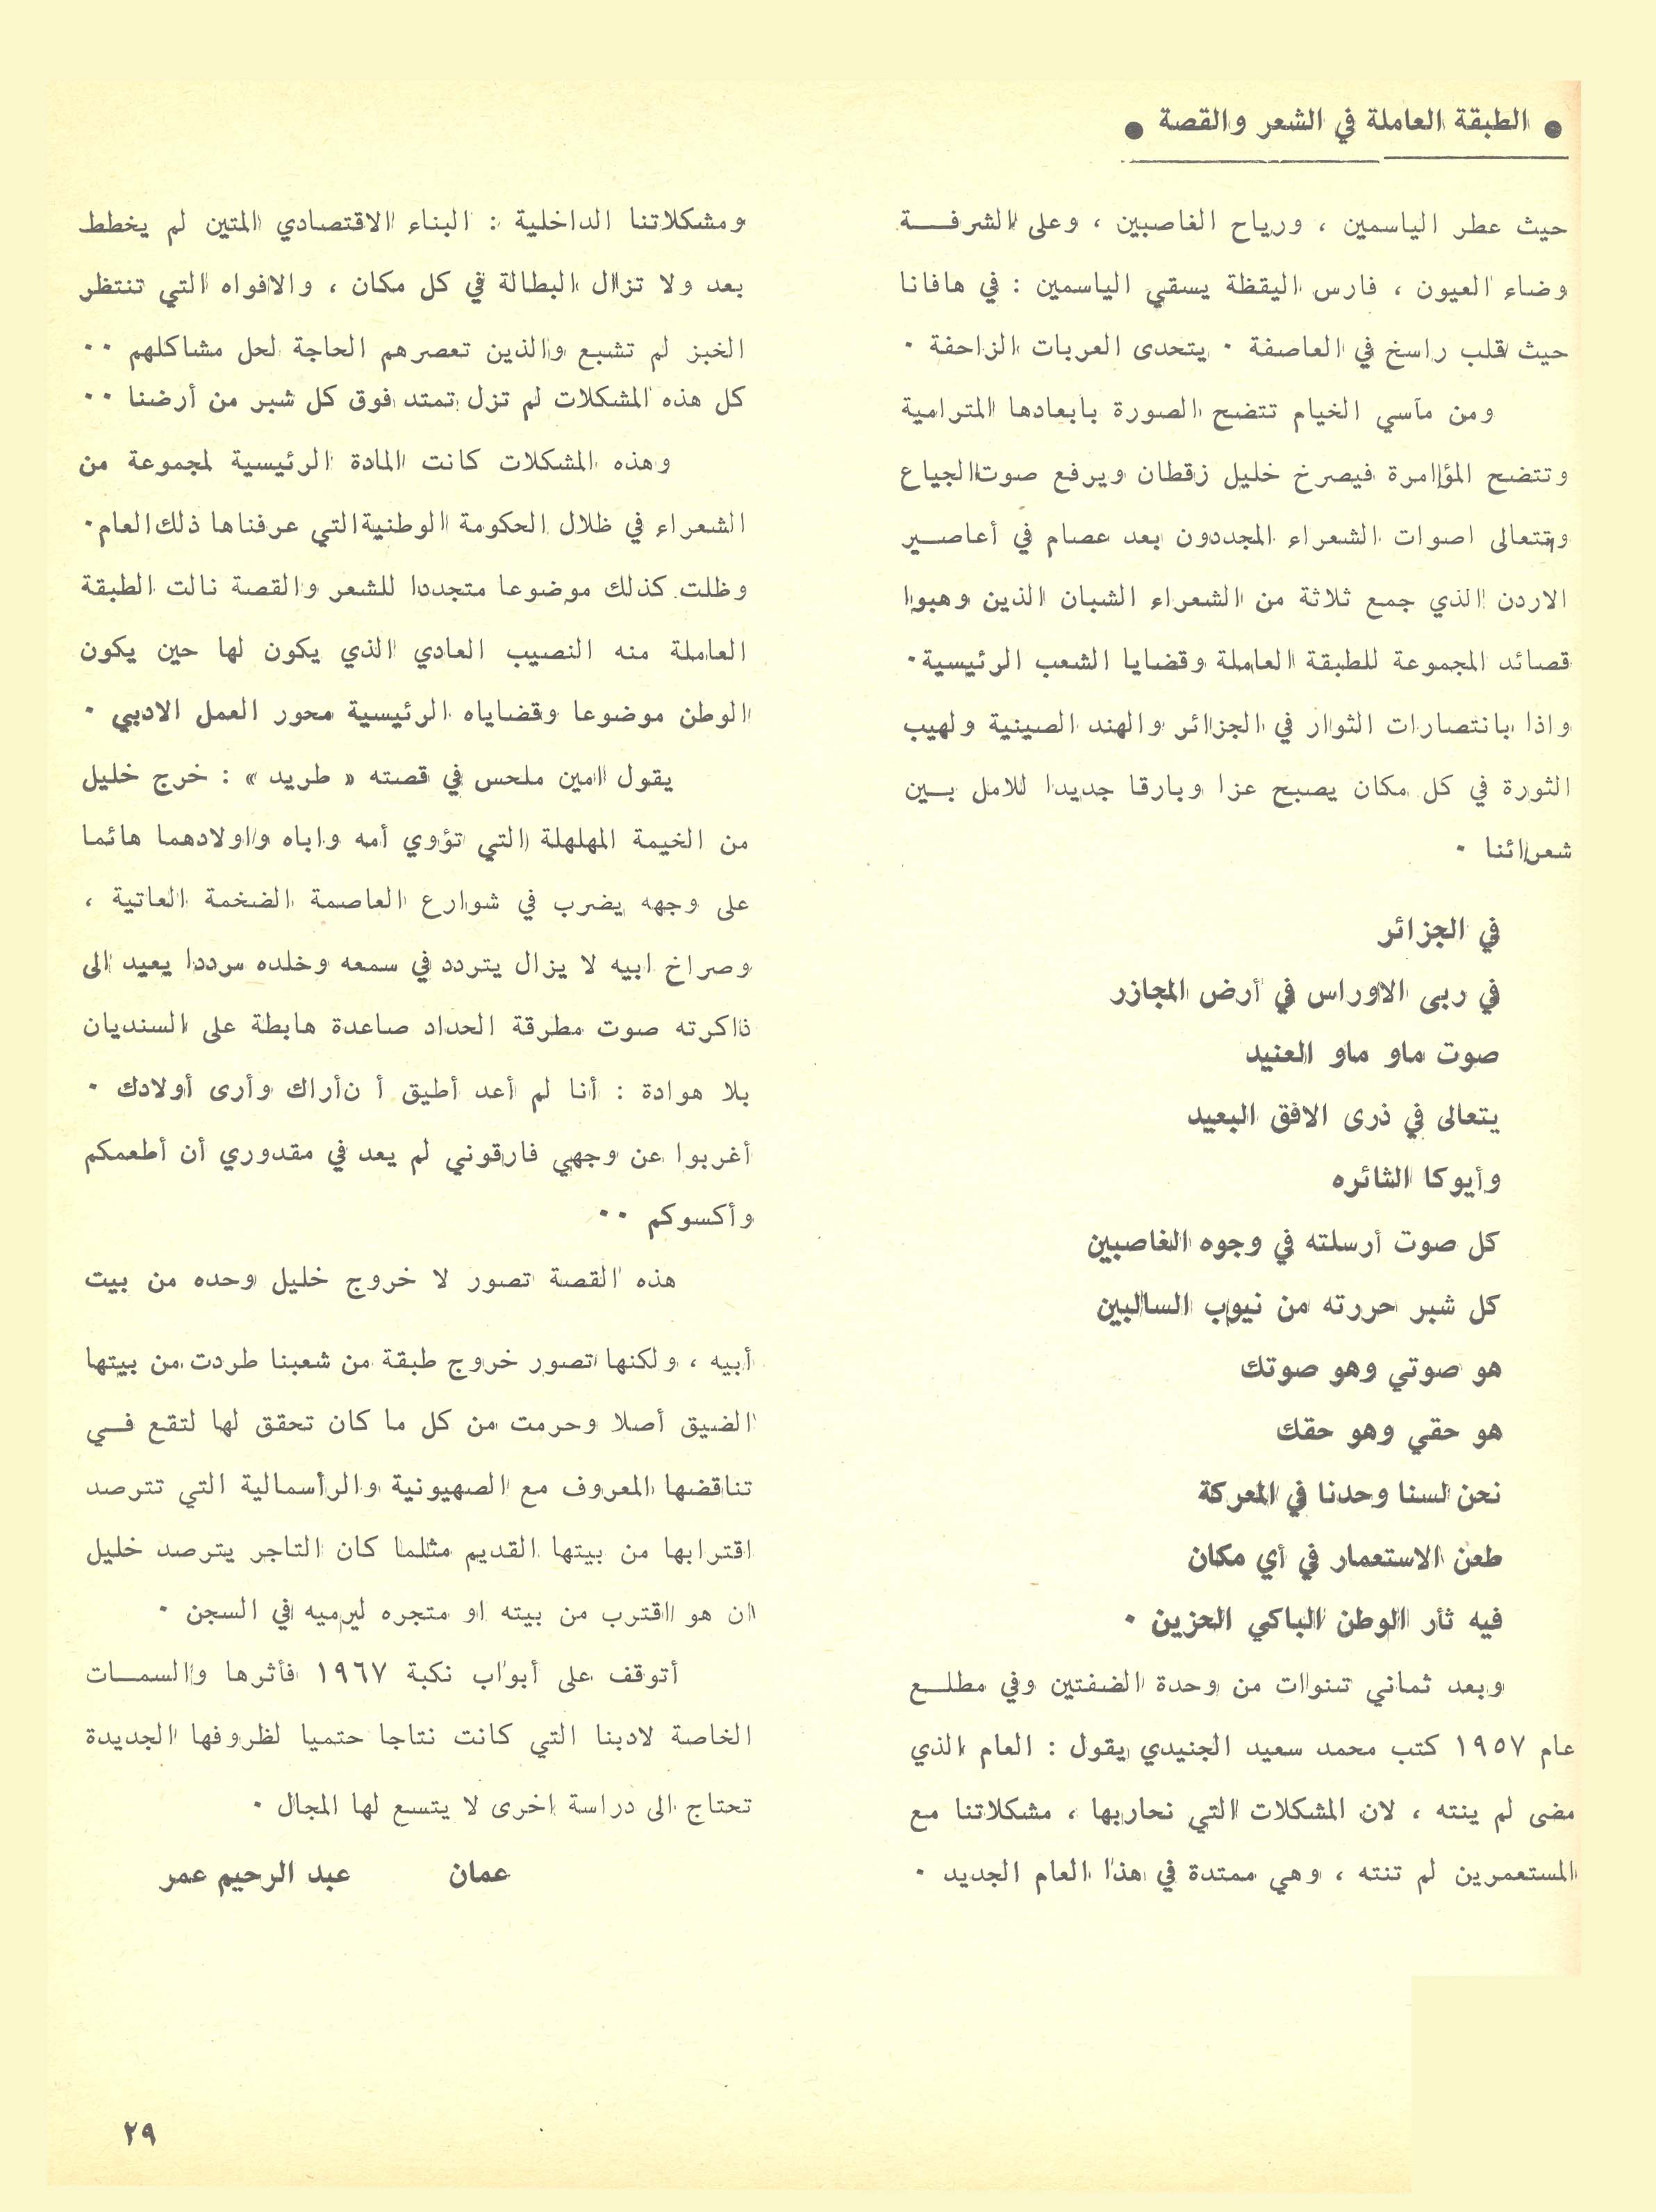 ● الطبقة العاملة في الشعر والقصة ●
حيث عطر الياسمين ، ورياح الغاصبين ، وعلى الشرفــة
وضاء العيون ، فارس اليقظة يسقي الياسمين : في هافانا
حيث قلب راسخ في العاصفة ٠ يتحدى العربات الزاحفة ٠
ومن مآسي الخيام تتضح الصورة بابعادها المترامية
وتتضح المؤامرة فيصرخ خليل زقطان ويرفع صوت الجياع
وتتعالى اصوات الشعراء المجددون بعد عصام في أعاصــير
الاردن الذي جمع ثلاثة من الشعراء الشبان الذين وهبوا
قصائد المجموعة للطبقة العاملة وقضايا الشعب الرئيسية٠
واذا بانتصارات الثوار في الجزائر والهند الصينية ولهيب
الثورة في كل مكان يصبح عزا وبارقا جديدا للامل بــين
شعرائنا ٠
في الجزائر
في ربى الاوراس في أرض المجازر
صوت ماو ماو العنيد
يتعالى في ذرى الافق البعيد
وأيوكا الثائره
كل صوت أرسلته في وجوه الغاصبين
كل شبر حررته من نيوب السالبين
هو صوتي وهو صوتك
هو حقي وهو حقك
نحن لسنا وحدنا في المعركة
طعن الاستعمار في أي مكان
فيه ثأر الوطن الباكي الحزين ٠
وبعد ثماني سنوات من وحدة الضفتين وفي مطلــع
عام ١٩٥٧ كتب محمد سعيد الجنيدي يقول : العام الذي
مضى لم ينته ، لان المشكلات التي نحاربها ، مشكلاتنا مع
المستعمرين لم تنته ، وهي ممتدة في هذا العام الجديد ٠
ومشكلاتنا الداخلية : البناء الاقتصادي المتين لم يخطط
بعد ولا تزال البطالة في كل مكان ، والافواه التي تنتظر
الخبز لم تشبع والذين تعصرهم الحاجة لحل مشاكلهم ٠٠
كل هذه المشكلات لم تزل تمتد فوق كل شبر من أرضنا ٠٠
وهذه المشكلات كانت المادة الرئيسية لمجموعة من
الشعراء في ظلال الحكومة الوطنية التي عرفناها ذلك العام٠
وظلت كذلك موضوعا متجددا للشعر والقصة نالت الطبقة
العاملة منه النصيب العادي الذي يكون لها حين يكون
الوطن موضوعا وقضاياه الرئيسية محور العمل الادبي ٠
يقول امين ملحس في قصته « طريد » : خرج خليل
من الخيمة المهلهلة التي تؤوي أمه واباه واولادهما هائما
على وجهه يضرب في شوارع العاصمة الضخمة العاتية ،
وصراخ ابيه لا يزال يتردد في سمعه وخلده مرددا يعيد الى
ذاكرته صوت مطرقة الحداد صاعدة هابطة على السنديان
بلا هوادة : أنا لم أعد أطيق أ ن أراك وأرى أولادك ٠
أغربوا عن وجهي فارقوني لم يعد في مقدوري أن أطعمكم
وأكسوكم ٠٠
هذه القصة تصور لا خروج خليل وحده من بيت
أبيه ، ولكنها تصور خروج طبقة من شعبنا طردت من بيتها
الضيق أصلا وحرمت من كل ما كان تحقق لها لتقع فــي
تناقضها المعروف مع الصهيونية والرأسمالية التي تترصد
اقترابها من بيتها القديم مثلما كان التاجر يترصد خليل
ان هو اقترب من بيته او متجره ليرميه في السجن ٠
أتوقف على أبواب نكبة ١٩٦٧ فأثرها والسمــات
الخاصة لادبنا التي كانت نتاجا حتميا لظروفها الجديدة
تحتاج الى دراسة اخرى لا يتسع لها المجال ٠
عمان عبد الرحيم عمر
٢٩